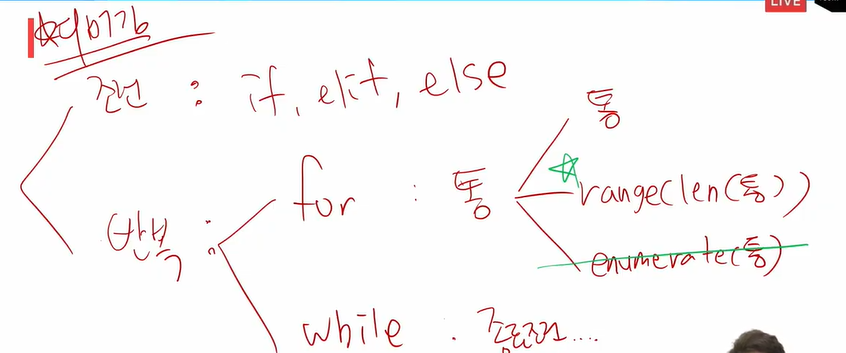 LIVE
조건 : if, elif, else
통
반복 : for : 통
range(len(통))
enumerate(통)
while : 종료조건....